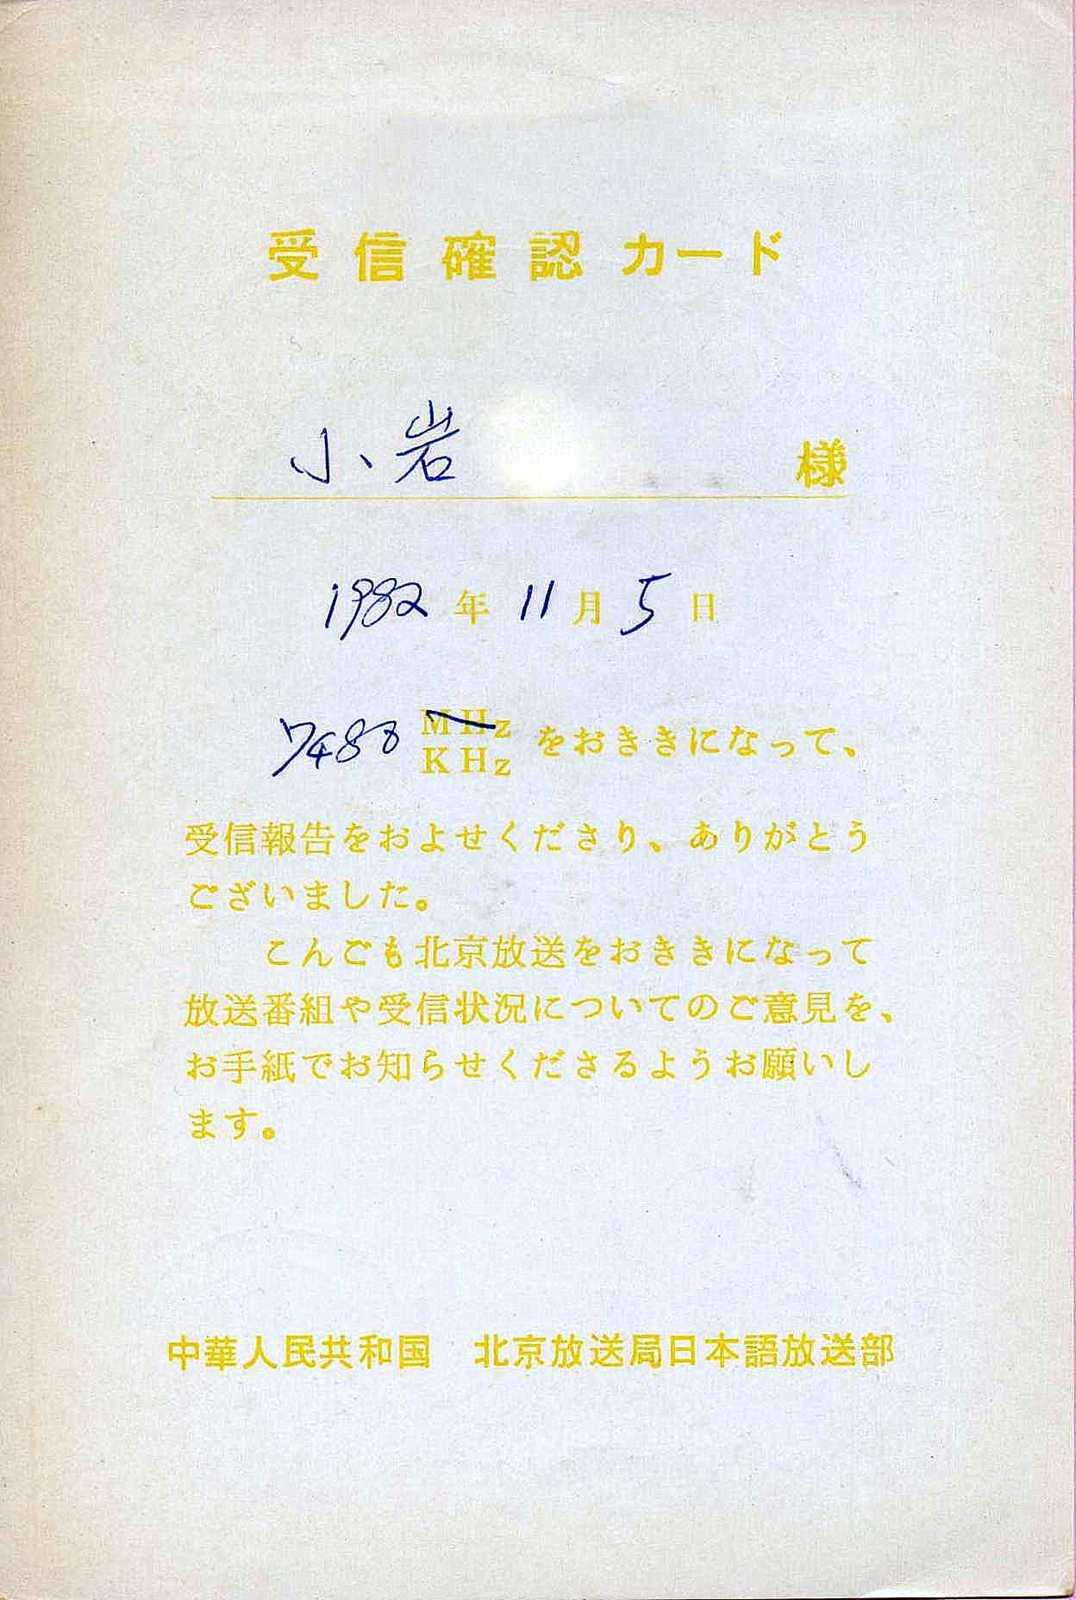 受信確認カード
小岩 様
1982年11月5日
7488 MHz
KHz をおききになって、
受信報告をおよせくださり、ありがとう
ございました。
こんごも北京放送をおききになって
放送番組や受信状況についてのご意見を、
お手紙でお知らせくださるようお願いし
ます。
中華人民共和国 北京放送局日本語放送部